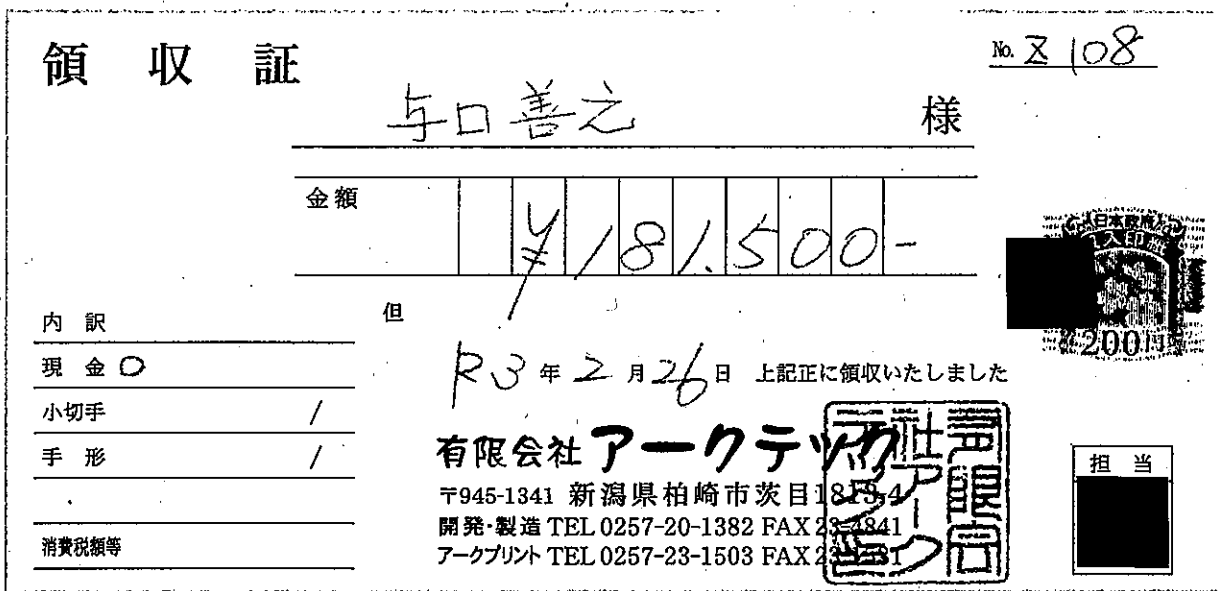 領収証
No. Z 108
与口善之 様
金額 ¥181,500-
但
内訳
現金 〇
小切手 /
手形 /
消費税額等
R3年2月26日 上記正に領収いたしました
有限会社アークテック
〒945-1341 新潟県柏崎市茨目1813-4
開発・製造 TEL 0257-20-1382 FAX 23-4841
アークプリント TEL 0257-23-1503 FAX
日本政府
収入印紙
200円
担当